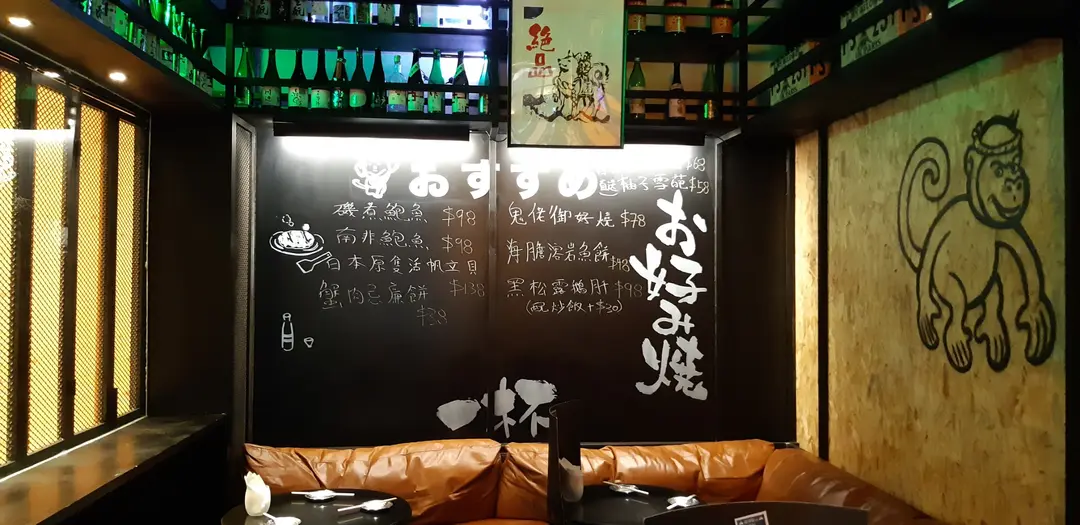 絶品
おすすめ
磯煮鮑魚 $98
南非鮑魚 $98
日本原隻活帆立貝
$138
蟹肉忌廉餅
$38
$63
柚子雪葩 $58
鬼佬御好燒 $78
海膽溶岩魚餅
$98
黑松露鵝肝 $98
(配炒飯+$30)
お好み焼
一杯